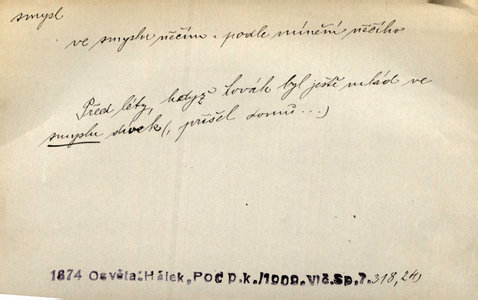 smysl
ve smyslu něčím - podle mínění něčího
Před léty, když Kovák byl ještě mlád ve
smyslu dívek (, přišel domů ...)
1874 Osvěta: Hálek, Pod p.k./1909. Vlč. Sp. 7. 318, 24)